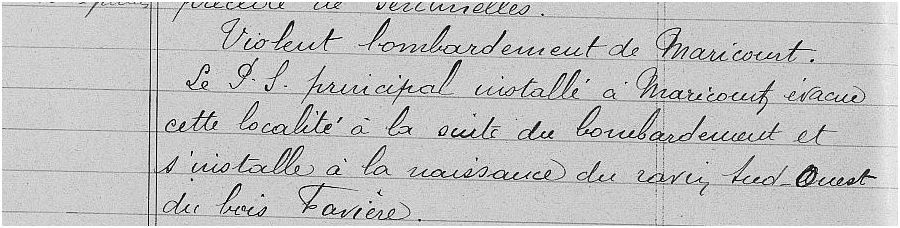 de sentinelles.
Violent bombardement de Maricourt.
Le P. S. principal installé à Maricourt, évacue
cette localité à la suite du bombardement et
s'installe à la naissance du ravin, Sud-Ouest
du bois Favière.